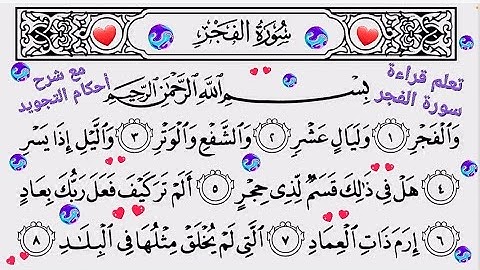 سُورَةُ الفَجْرِ
تعلم قراءة سورة الفجر
مع شرح أحكام التجويد
بِسْمِ اللَّهِ الرَّحْمَٰنِ الرَّحِيمِ
وَالْفَجْرِ ١ وَلَيَالٍ عَشْرٍ ٢ وَالشَّفْعِ وَالْوَتْرِ ٣ وَاللَّيْلِ إِذَا يَسْرِ
٤ هَلْ فِي ذَٰلِكَ قَسَمٌ لِّذِي حِجْرٍ ٥ أَلَمْ تَرَ كَيْفَ فَعَلَ رَبُّكَ بِعَادٍ
٦ إِرَمَ ذَاتِ الْعِمَادِ ٧ الَّتِي لَمْ يُخْلَقْ مِثْلُهَا فِي الْبِلَادِ ٨